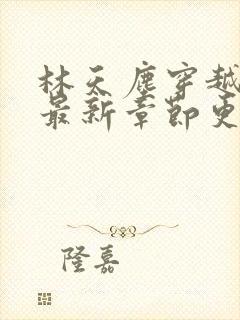 林天尘穿越
最新章節更
隆嘉